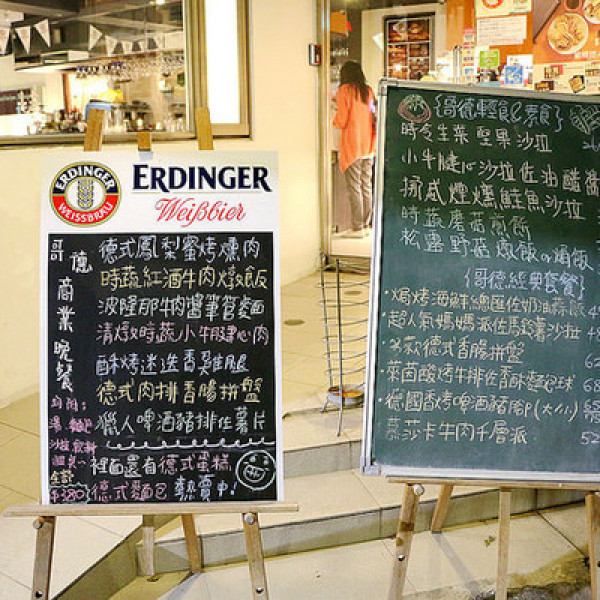 ERDINGER
WEISSBRÄU
ERDINGER
Weißbier
哥德商業晚餐
均附:
湯 麵包
沙拉飲料
全部
$380
德式鳳梨蜜烤燻肉
時蔬紅酒牛肉燉飯
波隆那牛肉醬筆管麵
清燉時蔬小牛腱心肉
酥烤迷迭香雞腿
德式肉排香腸拼盤
獵人啤酒豬排佐薯片
裡面還有德式蛋糕
德式麵包 熱賣中!
{哥德輕食&素食}
時令生菜堅果沙拉
小牛腱心沙拉佐油醋醬
挪威煙燻鮭魚沙拉
時蔬磨菇煎餅
松露野菇燉飯or焗飯
{哥德經典套餐}
·焗烤酒鮮總匯佐奶油蒜飯
·超人氣媽媽派佐馬鈴薯沙拉
·多款德式香腸拼盤 62
·萊茵酸烤牛排佐香酥麵包球 68
·德國香烤啤酒豬腳(大/小)
·慕莎卡牛肉千層派 52